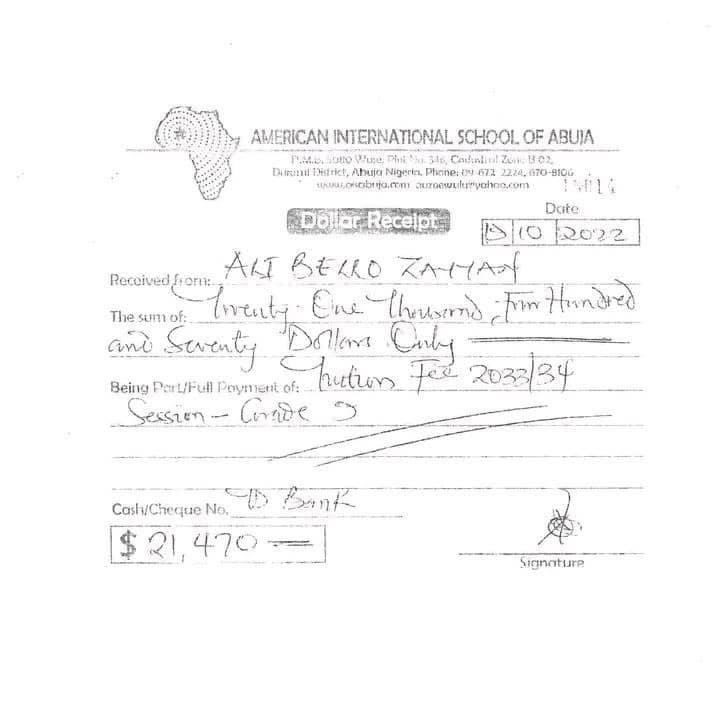 AMERICAN INTERNATIONAL SCHOOL OF ABUJA
P.M.B. 5080 Wuse, Plot No. 346, Cadastral Zone B 02,
Durumi District, Abuja Nigeria. Phone: 09-672 2224, 670-8106
Dollar Receipt
Date
10 2022
Received from: ALI BELLO
The sum of: Twenty-One Thousand, Four Hundred
and Seventy Dollars Only
Being Part/Full Payment of: Tuition Fee 2033/34
Session - Grade 9
Cash/Cheque No. Bank
$ 21,470
Signature